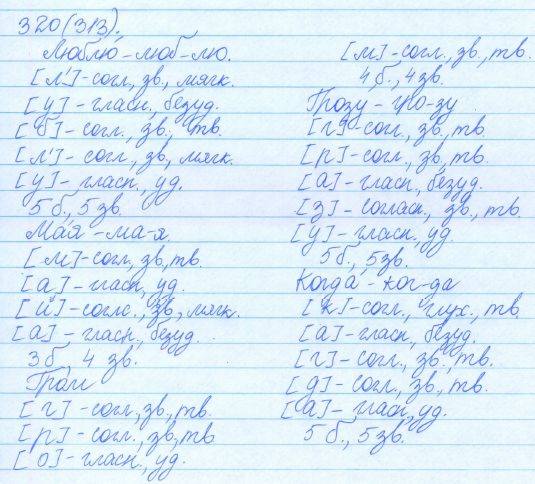 320(313).
Люблю-люб-лю.
[л']-согл, зв., мягк.
[у]-гласн, безуд.
[б]-согл., зв., тв.
[л']-согл, зв, мягк.
[у]-гласн, уд.
5б., 5зв.
Мая-ма-я.
[м]-согл, зв, тв.
[а]-гласн, уд.
[й]-соглс., зв, мягк.
[а]-гласн, безуд.
3б, 4 зв.
Гром
[г]-согл, зв, тв.
[р]-согл., зв, тв
[о]-гласн., уд.
[м]-согл., зв., тв.
4б., 4зв.
Грозу-гро-зу
[г]-согл, зв., тв.
[р]-согл., зв, тв.
[а]-гласн, безуд.
[з]-согласн., зв., тв.
[у]-гласн, уд.
5б., 5зв.
Когда-ког-да
[к]-согл., глух., тв.
[а]-гласн, безуд.
[г]-согл., зв., тв.
[д]-согл., зв., тв.
[а]-гласн, уд.
5б., 5зв.